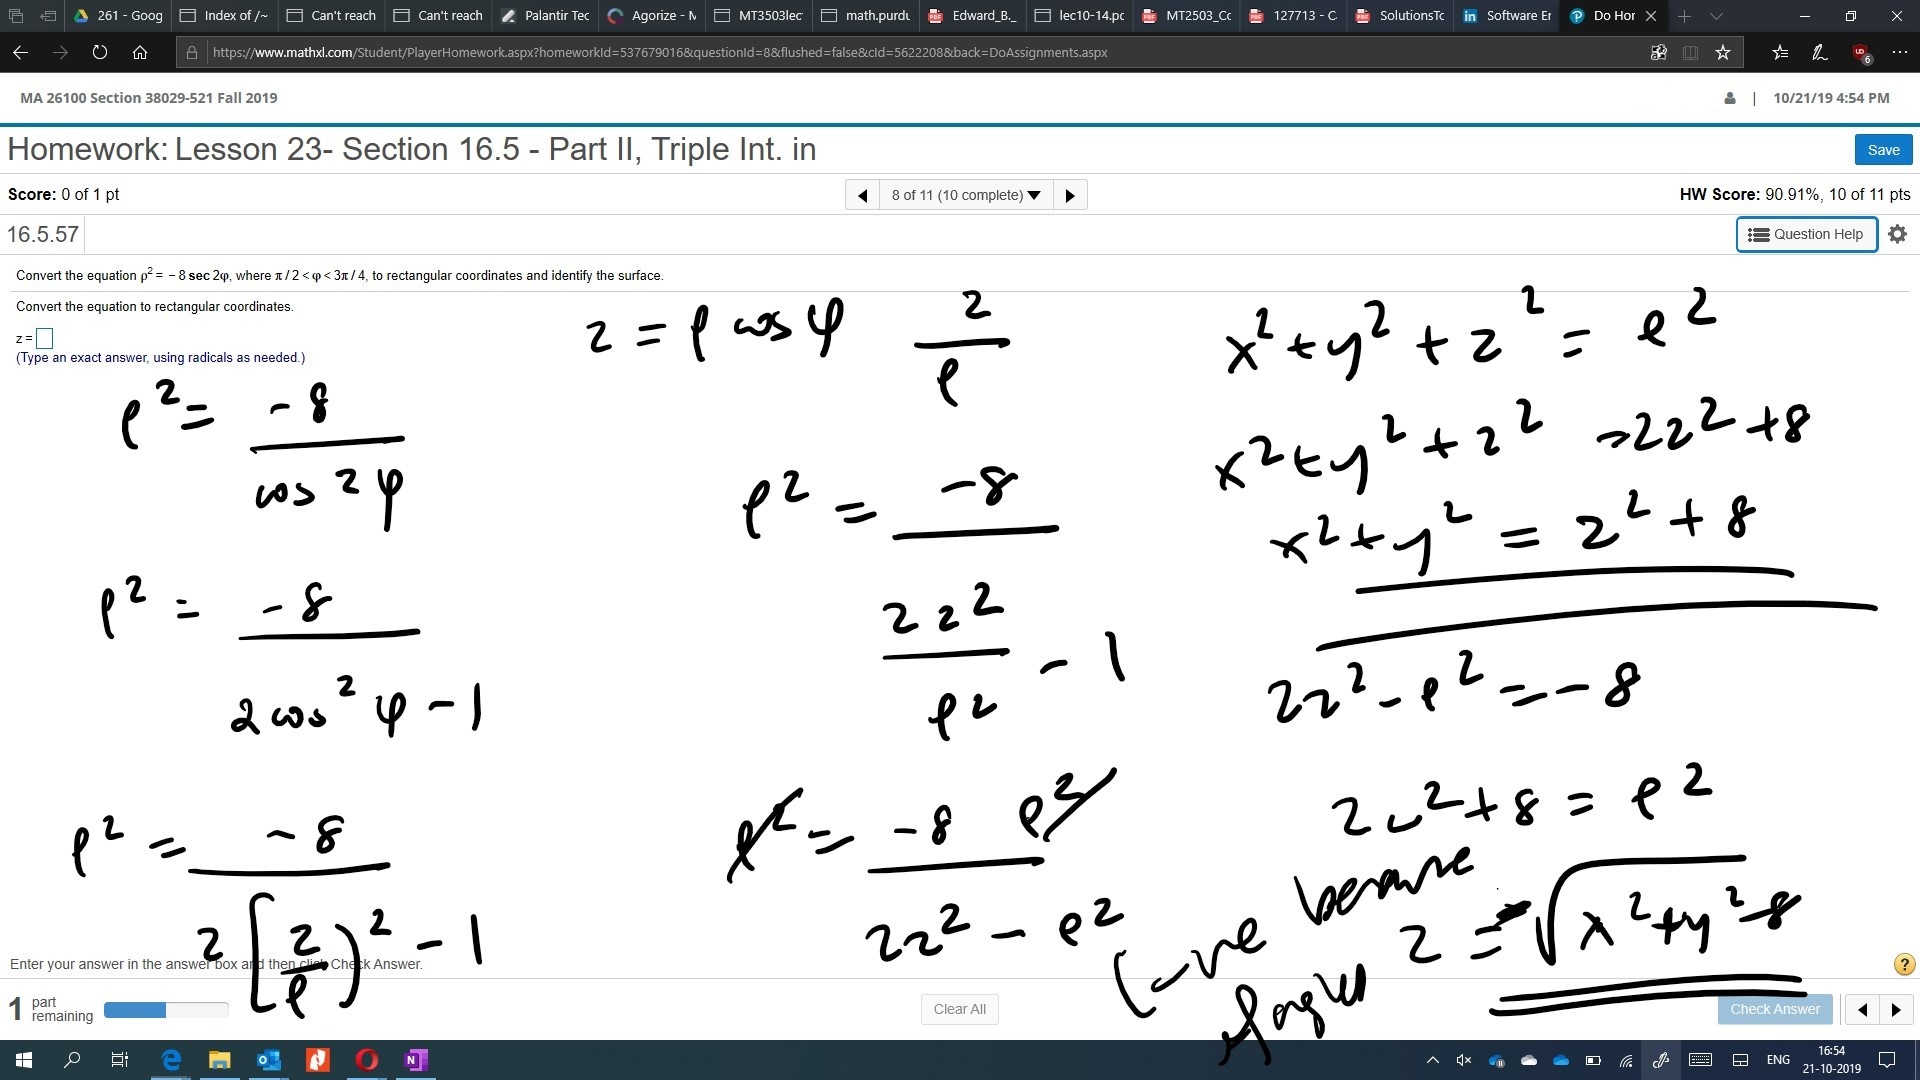 261 - Goog
Index of /~
Can't reach
Can't reach
Palantir Tec
Agorize - M
MT3503lec
math.purdu
Edward_B._
lec10-14.pc
MT2503_Cc
127713 - C.
SolutionsTc
Software Er
Do Hor
https://www.mathxl.com/Student/PlayerHomework.aspx?homeworkId=537679016&questionId=8&flushed=false&cId=5622208&back=DoAssignments.aspx
MA 26100 Section 38029-521 Fall 2019
| 10/21/19 4:54 PM
Homework: Lesson 23- Section 16.5 - Part II, Triple Int. in
Save
Score: 0 of 1 pt
8 of 11 (10 complete)
HW Score: 90.91%, 10 of 11 pts
16.5.57
Question Help
Convert the equation ρ² = − 8 sec 2φ, where π / 2 < φ < 3π / 4, to rectangular coordinates and identify the surface.
Convert the equation to rectangular coordinates.
z =
(Type an exact answer, using radicals as needed.)
ρ² = -8
cos 2φ
ρ² = -8
2 cos² φ - 1
ρ² = -8
2 [z/ρ)² - 1
z = ρ cos φ
z/ρ
ρ² = -8
2z²/ρ² - 1
ρ² = -8 ρ²
2z² - ρ²
x² + y² + z² = ρ²
x² + y² + z² = 2z² + 8
x² + y² = z² + 8
2z² - ρ² = -8
2z² + 8 = ρ²
z = -√x² + y² - 8
(-ve because
Enter your answer in the answer box and then click Check Answer.
1 part remaining
Clear All
Check Answer
?
ENG
16:54
21-10-2019